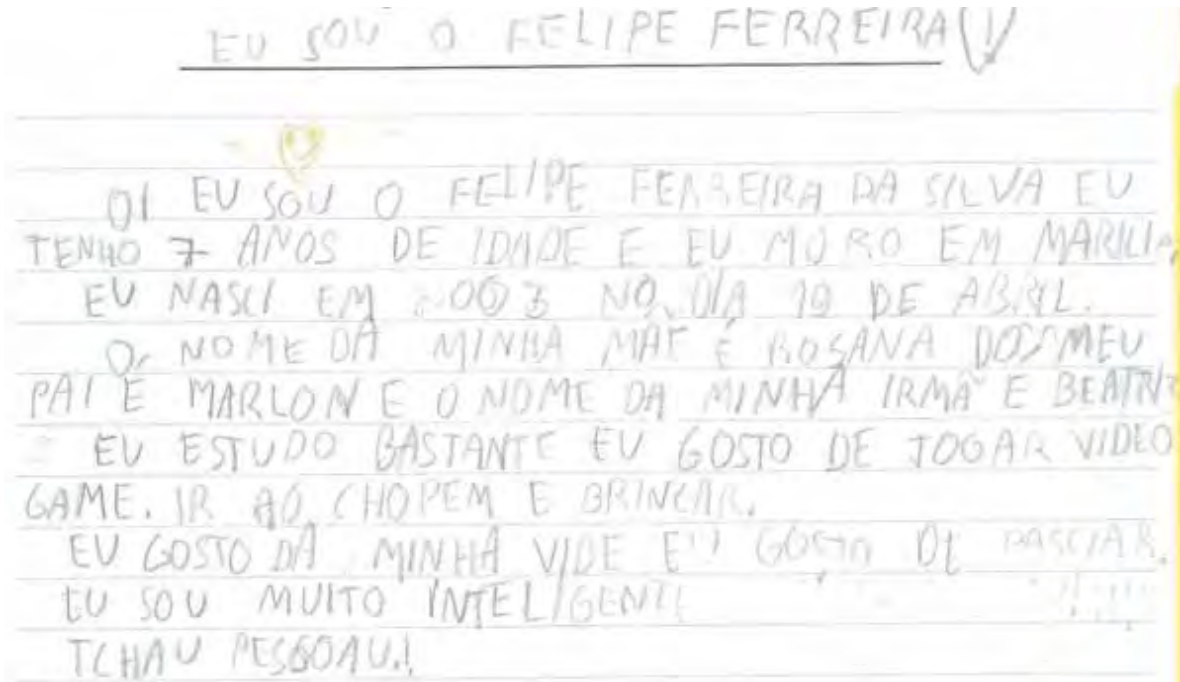 EU SOU O FELIPE FERREIRA!
OI EU SOU O FELIPE FERREIRA DA SILVA EU
TENHO 7 ANOS DE IDADE E EU MORO EM MARILIA,
EU NASCI EM 2003 NO DIA 19 DE ABRIL.
O NOME DA MINHA MÃE É ROSANA DO MEU
PAI E MARLON E O NOME DA MINHA IRMÃ E BEATRIZ
EU ESTUDO BASTANTE EU GOSTO DE JOGAR VIDEO
GAME. IR AO CHOPEM E BRINCAR.
EU GOSTO DA MINHA VIDE EU GOSTO DE PASCIAR.
EU SOU MUITO INTELIGENTE
TCHAU PESSOAU.!